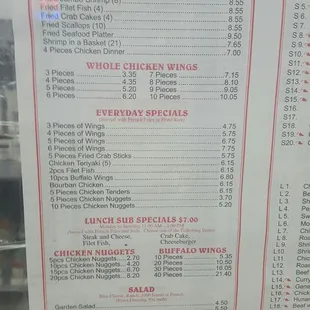 Fried Filet Fish (4) 8.55
Fried Crab Cakes (4) 8.55
Fried Scallops (10) 8.55
Fried Seafood Platter 9.50
Shrimp in a Basket (21) 7.65
4 Pieces Chicken Dinner 7.00
WHOLE CHICKEN WINGS
3 Pieces 3.35 7 Pieces 7.15
4 Pieces 4.35 8 Pieces 8.10
5 Pieces 5.20 9 Pieces 9.05
6 Pieces 6.20 10 Pieces 10.05
EVERYDAY SPECIALS
3 Pieces of Wings 4.75
4 Pieces of Wings 5.75
5 Pieces of Wings 6.75
6 Pieces of Wings 7.75
5 Pieces Fried Crab Sticks 5.75
Chicken Teriyaki (5) 6.15
2pcs Filet Fish 6.15
10pcs Buffalo Wings 6.80
Bourban Chicken 6.15
5 Pieces Chicken Tenders 6.15
5 Pieces Chicken Nuggets 3.70
10 Pieces Chicken Nuggets 5.20
LUNCH SUB SPECIALS $7.00
Steak and Cheese, Crab Cake,
Filet Fish, Cheeseburger
CHICKEN NUGGETS BUFFALO WINGS
5pcs Chicken Nuggets 2.70 10 Pieces 5.35
10pcs Chicken Nuggets 4.20 20 Pieces 10.50
15pcs Chicken Nuggets 6.70 30 Pieces 16.05
20pcs Chicken Nuggets 8.20 40 Pieces 21.40
SALAD
Garden Salad 4.50
5.50
S 5.
S 6.
S 7.
S 8.
S 9.
S10.
S11.
S12.
S13.
S14.
S15.
S16.
S17.
S18.
S19.
S20.
L 1.
L 2.
L 3.
L 4.
L 5.
L 6.
L 7.
L 8.
L 9.
L10.
L11.
L12.
L13. Beef
L14.
L15.
L16.
L17.
L18.